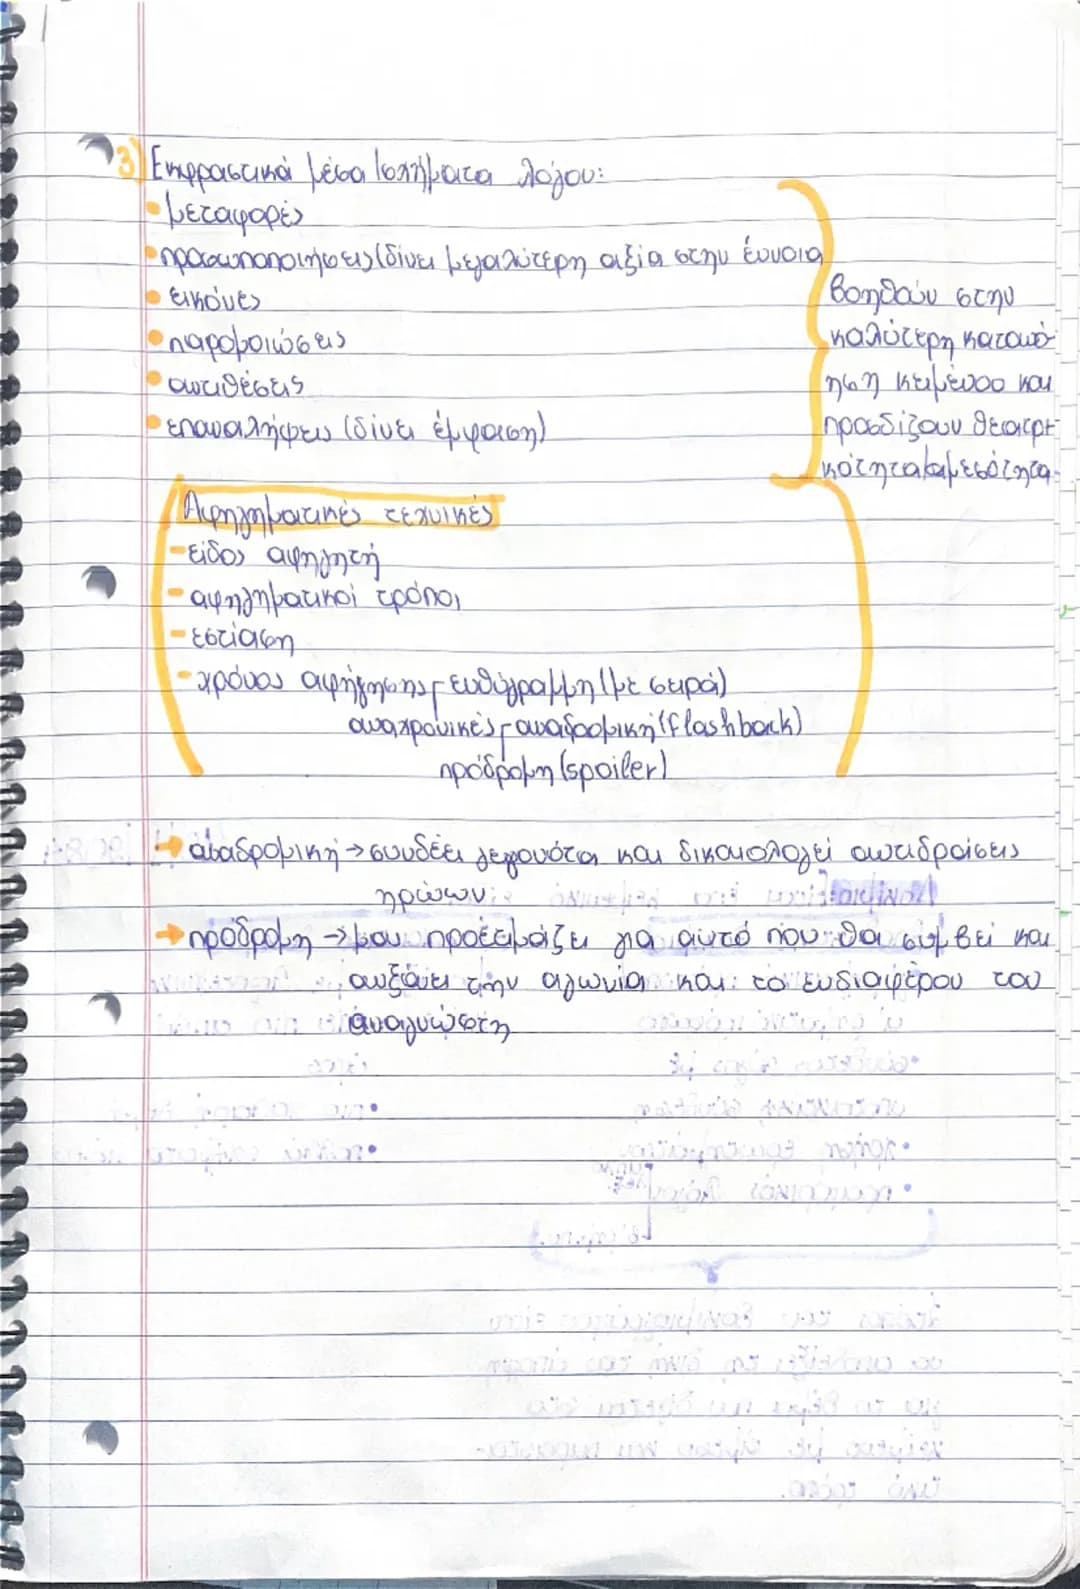 3) Εκφραστικά μέσα/σχήματα λόγου:
• μεταφορές
• προσωποποιήσεις (δίνει μεγαλύτερη αξία στην έννοια
• εικόνες
• παρομοιώσεις
• αντιθέσεις
• επαναλήψεις (δίνει έμφαση)
βοηθούν στην
καλύτερη κατανό-
ηση κειμένου και
προσδίζουν θεατρι-
κότητα/αμεσότητα.
Αφηγηματικές τεχνικές
- είδος αφηγητή
- αφηγηματικοί τρόποι
- εστίαση
- χρόνος αφήγησης - ευθύγραμμη (με σειρά)
αναχρονικές - αναδρομική (flashback)
πρόδρομη (spoiler)
→ αναδρομική → συνδέει γεγονότα και δικαιολογεί αντιδράσεις
ηρώων
→ πρόδρομη → μου προετιμάζει για αυτό που θα συμβεί και
αυξάνει την αγωνία και το ενδιαφέρον του
αναγνώστη